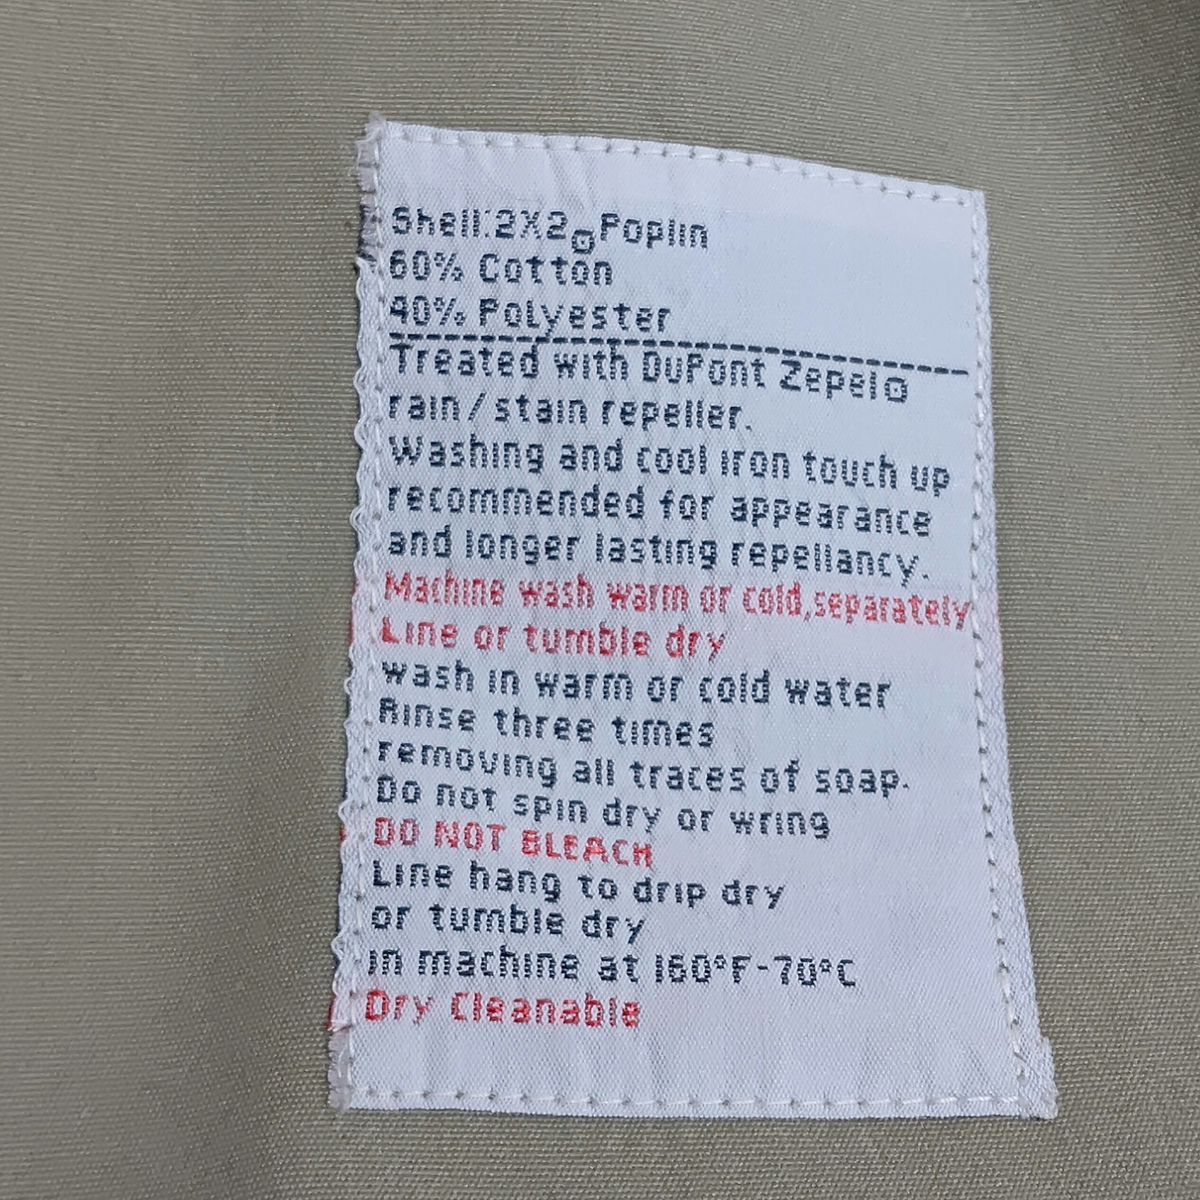 Shell:2X2® Poplin
60% Cotton
40% Polyester
Treated with DuPont Zepel®
rain/stain repeller.
Washing and cool iron touch up
recommended for appearance
and longer lasting repellancy.
Machine wash warm or cold,separately
Line or tumble dry
wash in warm or cold water
Rinse three times
removing all traces of soap.
Do not spin dry or wring
DO NOT BLEACH
Line hang to drip dry
or tumble dry
in machine at 160°F-70°C
Dry Cleanable